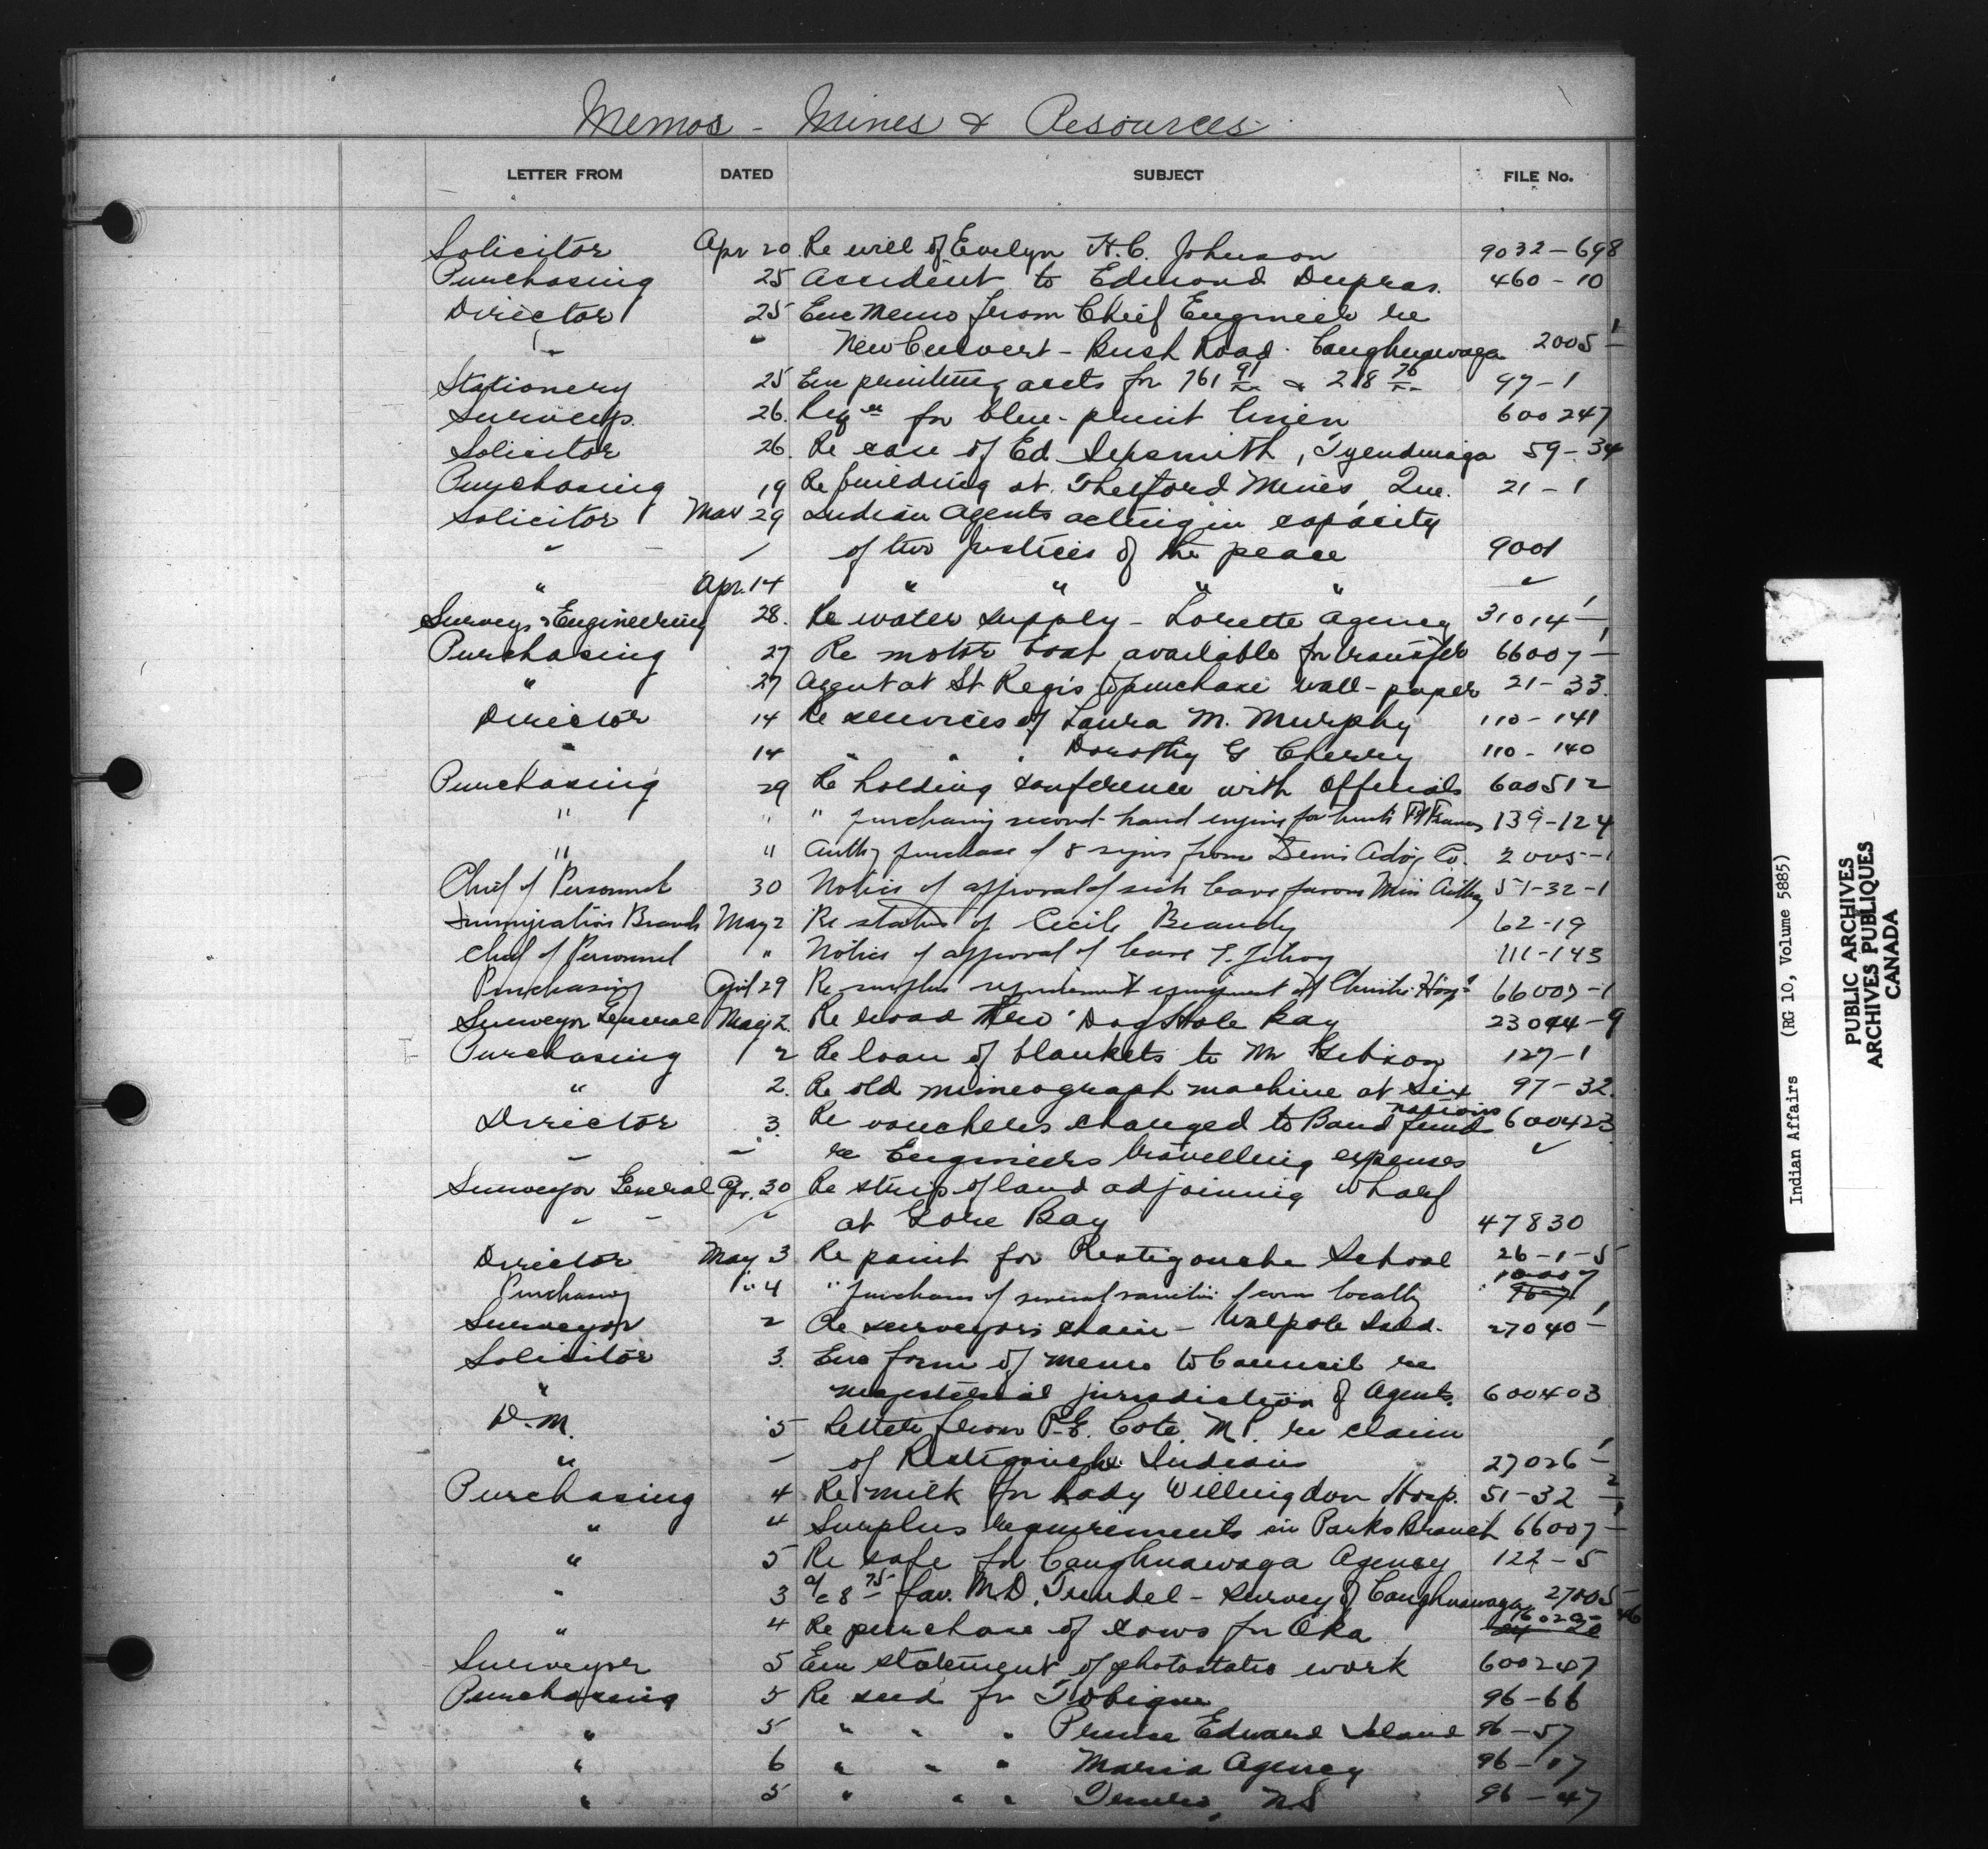 Memos - Mines & Resources
LETTER FROM DATED SUBJECT FILE No.
Solicitor Apr 20 Re will of Evelyn H.C. Johnson 9032-698
Purchasing 25 Accident to Edmond Dupras. 460-10
Director 25 Enc Memo from Chief Engineer re
" " New Culvert - Bush Road - Caughnawaga 2005-1
Stationery 25 Enc printing accts for 761 91/xx & 218 76/xx 97-1
Surveys. 26. Reqn for blue-print linen 600247
Solicitor 26. Re case of Ed. Sexsmith, Tyendinaga 59-34
Purchasing 19 Re building at Thetford Mines, Que. 21-1
Solicitor Mar 29 Indian Agents acting in capacity
" " of two Justices of the peace 9001
" Apr. 14 " " " " "
Surveys & Engineering 28. Re water supply - Lorette Agency 31014-1
Purchasing 27 Re motor boat available for transfer 66007-1
" 27 Agent at St Regis to purchase wall-paper 21-33.
Director 14 Re services of Laura M. Murphy 110-141
" 14 " " " Dorothy G Cherry 110-140
Purchasing 29 Re holding conference with Officials 600512
" " " purchasing second-hand engine for launch Ft Frances 139-124
" " Auth purchase of 8 signs from Advg Co. 2005-1
Chief of Personnel 30 Notice of approval of sick leave favour Miss 51-32-1
Immigration Branch May 2 Re status of Cecile Beaudry 62-19
Chief of Personnel " Notice of approval of leave 111-143
Purchasing April 29 Re surplus equipment at Christie 66007-1
Surveyor General May 2. Re road thro' Dog Hole Bay 23044-9
Purchasing 2 Re loan of blankets to Mr Gibson 127-1
" 2. Re old mimeograph machine at Six Nations 97-32.
Director 3. Re vouchers charged to Band fund 600423
" " re Engineers travelling expenses "
Surveyor General Apr. 30 Re strip of land adjoining wharf
" " " at Gore Bay 47830
Director May 3 Re paint for Restigouche School 26-1-5
Purchasing " 4 " purchase of several varieties of corn locally
Surveyor 2 Re surveyors chain - Walpole Isld. 27040-1
Solicitor 3. Enc form of memo to Council re
" magisterial jurisdiction of Agents. 600403
D.M. 5 Letter from P.E. Cote. M.P. re claim
" " of Restigouche Indians 27026-1
Purchasing 4 Re milk for Lady Willingdon Hosp. 51-32-2
" 4 Surplus requirements in Parks Branch 66007-1
" 5 Re safe for Caughnawaga Agency 122-5
" 3 a/c 8 75 fav. M.D. - survey of Caughnawaga 27005
" 4 Re purchase of cows for Oka
Surveyor 5 Enc statement of photostatic work 600247
Purchasing 5 Re seed for Tobique 96-66
" 5 " " " Prince Edward Island 96-57
" 6 " " " Maria Agency 96-17
" 5 " " " Truro, N.S 96-47
Indian Affairs (RG 10, Volume 5885)
PUBLIC ARCHIVES
ARCHIVES PUBLIQUES
CANADA